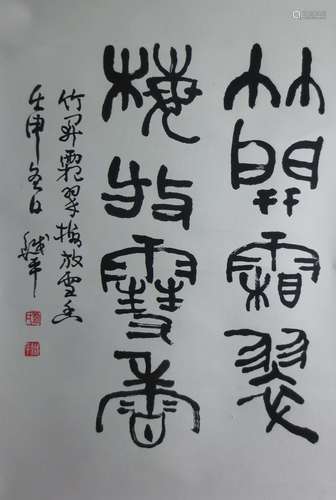 竹開霜翠
梅放雪香
竹開霜翠梅放雪香
壬申冬日